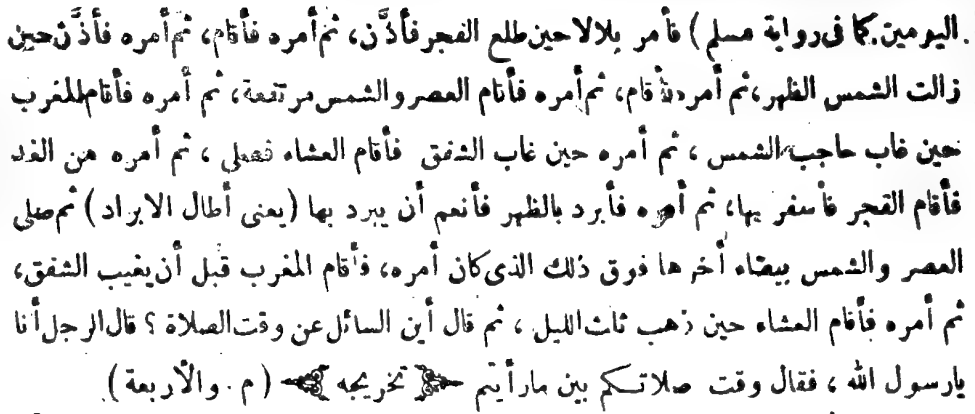 اليومين. كما فى رواية مسلم) فأمر بلالا حين طلع الفجر فأذَّن، ثم أمره فأقام، ثم أمره فأذَّن حين
زالت الشمس الظهر، ثم أمره فأقام، ثم أمره فأقام العصر والشمس مرتفعة، ثم أمره فأقام المغرب
حين غاب حاجب الشمس ، ثم أمره حين غاب الشفق فأقام العشاء فصلى ، ثم أمره من الغد
فأقام الفجر فأسفر بها، ثم أمره فأبرد بالظهر فأنعم أن يبرد بها (يعنى أطال الابراد) ثم صلى
العصر والشمس بيضاء أخرها فوق ذلك الذى كان أمره، فأقام المغرب قبل أن يغيب الشفق،
ثم أمره فأقام العشاء حين ذهب ثلث الليل ، ثم قال أين السائل عن وقت الصلاة ؟ قال الرجل أنا
يارسول الله ، فقال وقت صلاتكم بين مارأيتم ﴿ تخريجه ﴾ (م . والأربعة)